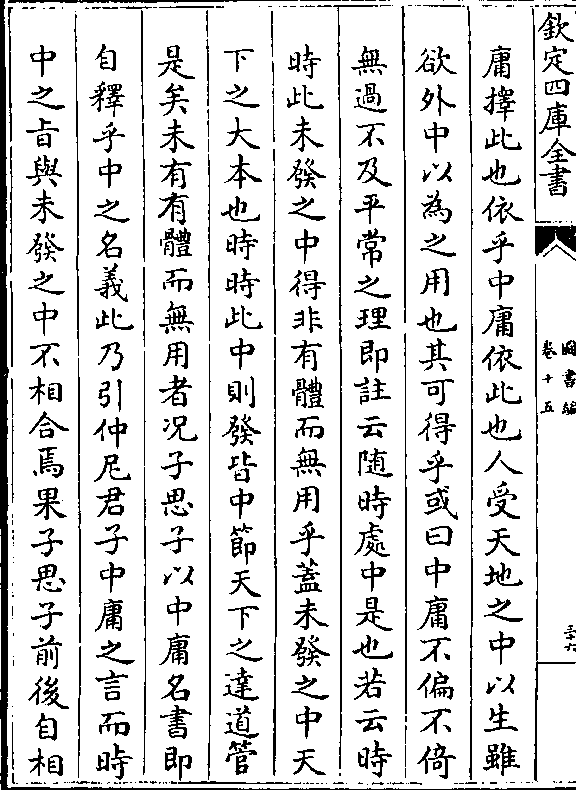 欽定四庫全書
圖書編
卷十五
三十六
庸擇此也依乎中庸依此也人受天地之中以生雖
欲外中以為之用也其可得乎或曰中庸不偏不倚
無過不及平常之理即註云随時處中是也若云時
時此未發之中得非有體而無用乎蓋未發之中天
下之大本也時時此中則發皆中節天下之達道管
是矣未有有體而無用者况子思子以中庸名書即
自釋乎中之名義此乃引仲尼君子中庸之言而時
中之旨與未發之中不相合焉果子思子前後自相